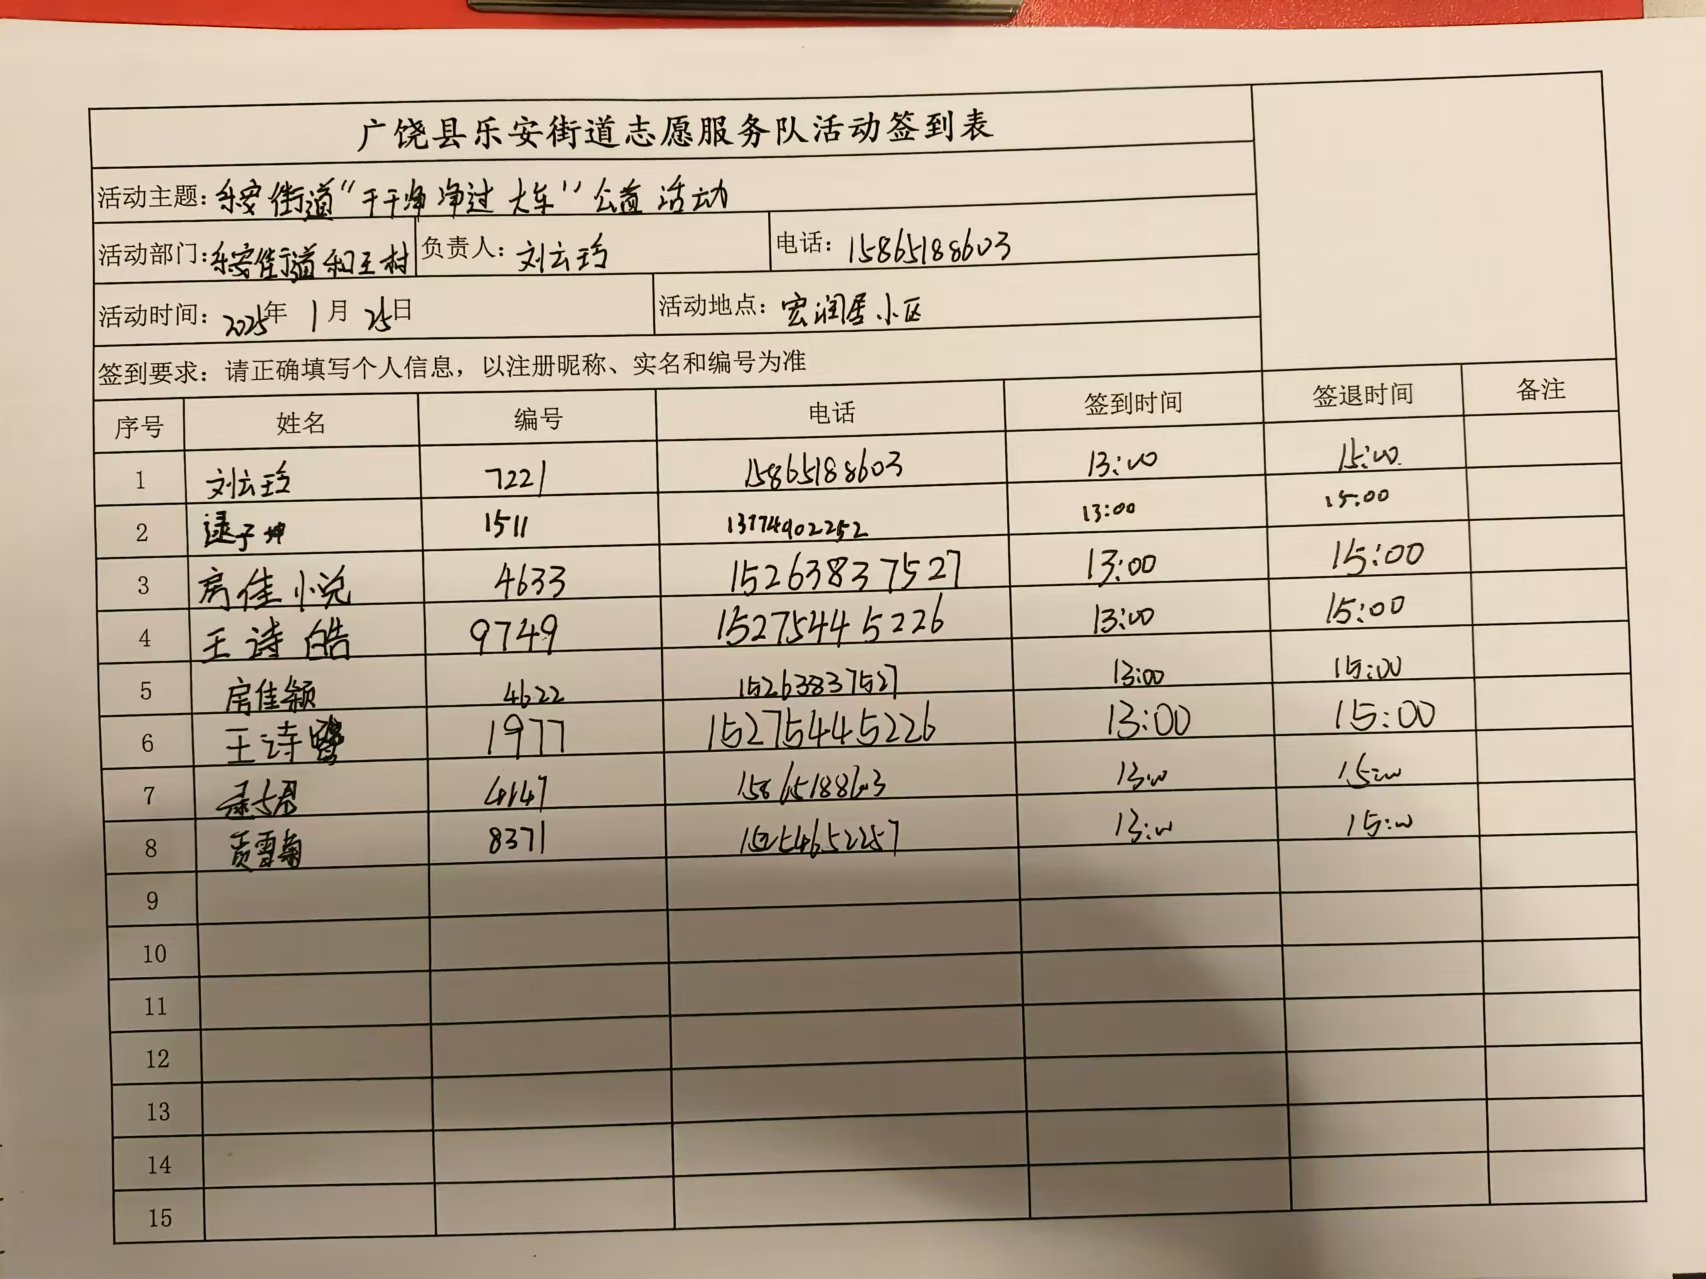 广饶县乐安街道志愿服务队活动签到表
活动主题：乐安街道“干干净净过大年”公益活动
活动部门：乐安街道和王村 负责人：刘云玲 电话：15865188603
活动时间：2025年 1月 25日 活动地点：宏润居小区
签到要求：请正确填写个人信息，以注册昵称、实名和编号为准
序号 姓名 编号 电话 签到时间 签退时间 备注
1 刘云玲 7221 15865188603 13:00 15:00
2 逯子坤 1511 13174902252 13:00 15:00
3 房佳小悦 4633 15263837527 13:00 15:00
4 王诗皓 9749 15275445226 13:00 15:00
5 房佳颖 4622 15263837527 13:00 15:00
6 王诗 1977 15275445226 13:00 15:00
7 4147 15865188603 13:00 15:00
8 贾雪菊 8371 13:00 15:00
9
10
11
12
13
14
15